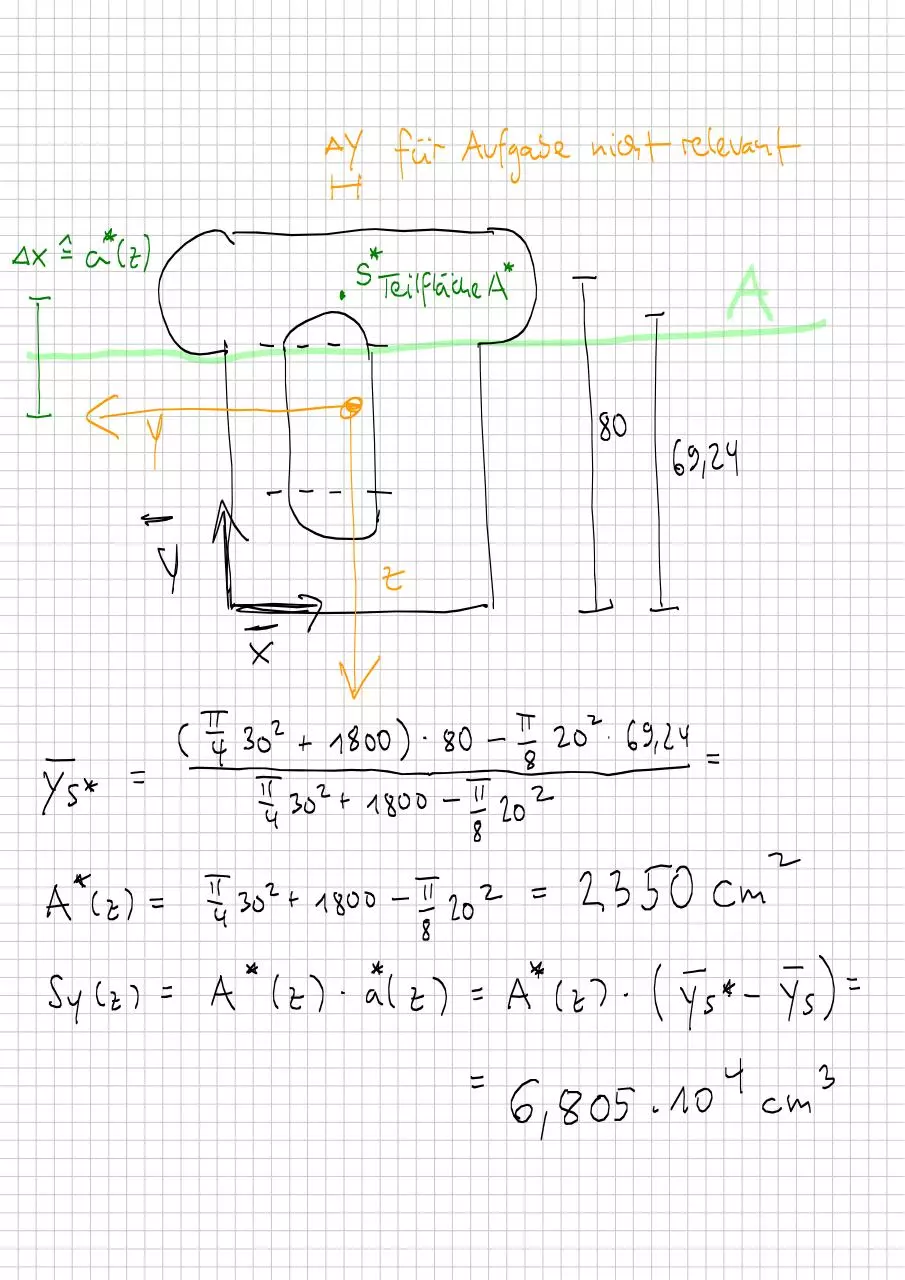 ΔY für Aufgabe nicht relevant
Δx ≙ a*(z)
S* Teilfläche A*
A
80
69,24
y
y
z
x
ȳs* = ((π/4 30² + 1800) · 80 − π/8 20² · 69,24) / (π/4 30² + 1800 − π/8 20²) =
A*(z) = π/4 30² + 1800 − π/8 20² = 2350 cm²
Sy(z) = A*(z) · a*(z) = A*(z) · (ȳs* − ȳs) =
= 6,805 · 10⁴ cm³